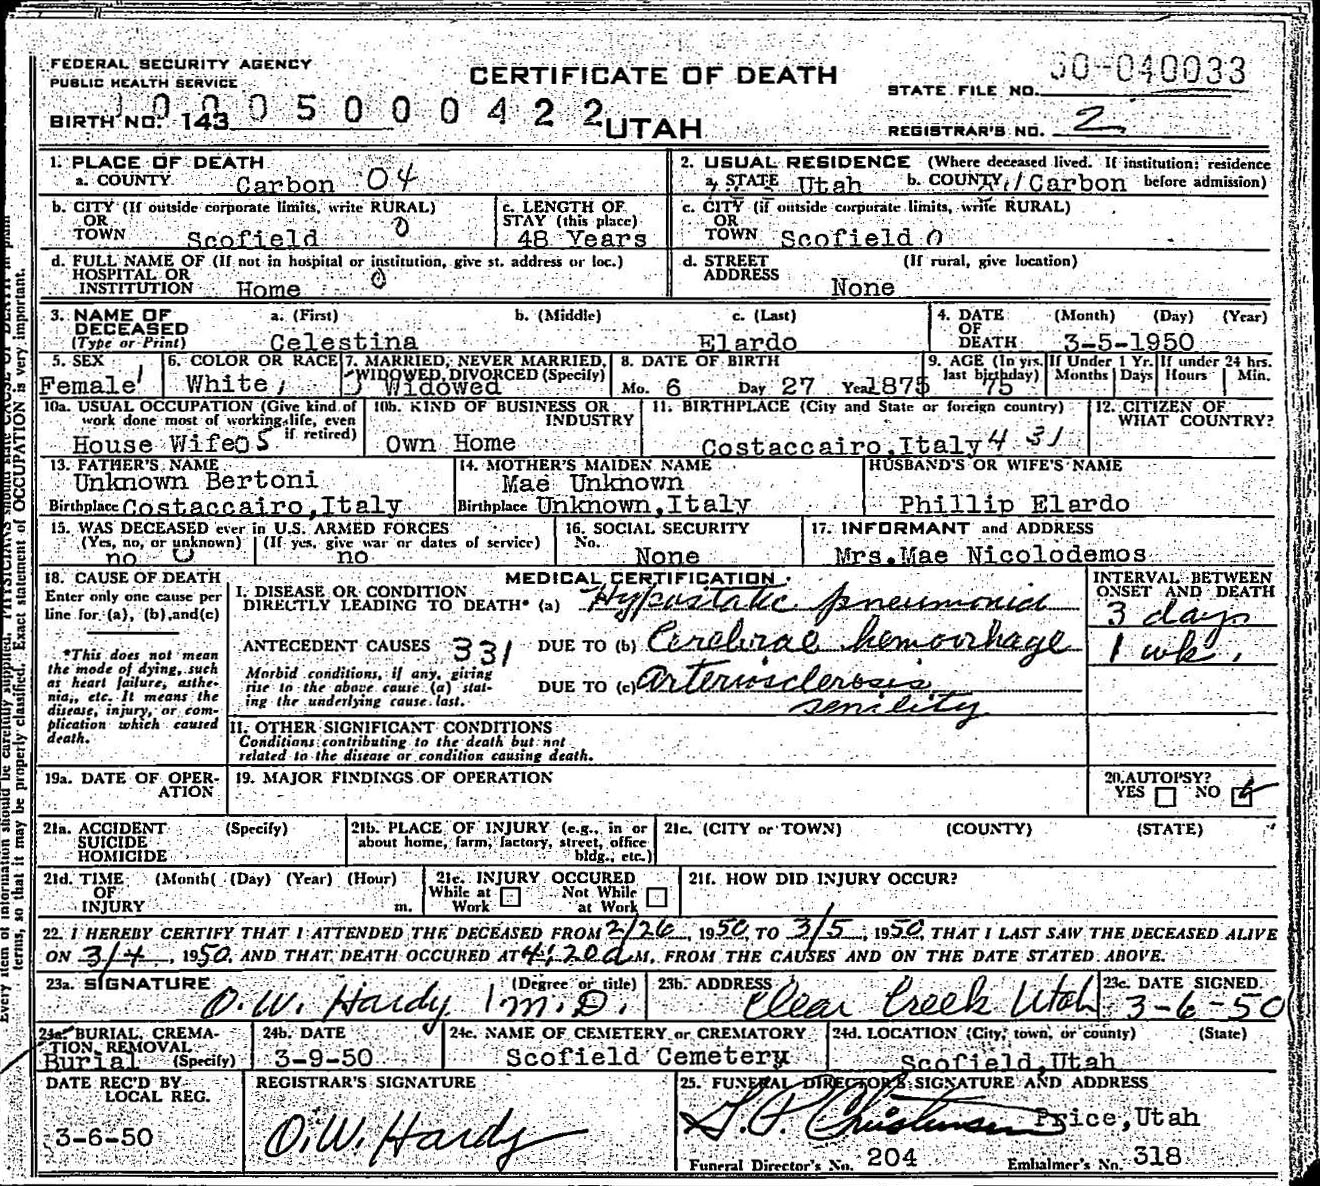 FEDERAL SECURITY AGENCY
PUBLIC HEALTH SERVICE
CERTIFICATE OF DEATH
STATE FILE NO. 50-040033
BIRTH NO. 143 0005000422
UTAH
REGISTRAR'S NO. 2
1. PLACE OF DEATH
a. COUNTY Carbon 04
2. USUAL RESIDENCE (Where deceased lived. If institution: residence before admission)
a. STATE Utah b. COUNTY Carbon
b. CITY (If outside corporate limits, write RURAL)
OR
TOWN Scofield 0
c. LENGTH OF
STAY (this place)
48 Years
c. CITY (if outside corporate limits, write RURAL)
OR
TOWN Scofield 0
d. FULL NAME OF (If not in hospital or institution, give st. address or loc.)
HOSPITAL OR
INSTITUTION Home 0
d. STREET (If rural, give location)
ADDRESS
None
3. NAME OF a. (First) b. (Middle) c. (Last)
DECEASED
(Type or Print) Celestina Elardo
4. DATE (Month) (Day) (Year)
OF
DEATH 3-5-1950
5. SEX
Female 1
6. COLOR OR RACE
White 1
7. MARRIED, NEVER MARRIED,
WIDOWED, DIVORCED (Specify)
Widowed
8. DATE OF BIRTH
Mo. 6 Day 27 Year 1875
9. AGE (In yrs. last birthday) 75
If Under 1 Yr. Months Days
If under 24 hrs. Hours Min.
10a. USUAL OCCUPATION (Give kind of
work done most of working life, even
if retired)
House Wife 05
10b. KIND OF BUSINESS OR
INDUSTRY
Own Home
11. BIRTHPLACE (City and State or foreign country)
Costaccairo, Italy 431
12. CITIZEN OF
WHAT COUNTRY?
13. FATHER'S NAME
Unknown Bertoni
Birthplace Costaccairo, Italy
14. MOTHER'S MAIDEN NAME
Mae Unknown
Birthplace Unknown, Italy
HUSBAND'S OR WIFE'S NAME
Phillip Elardo
15. WAS DECEASED ever in U.S. ARMED FORCES
(Yes, no, or unknown) (If yes, give war or dates of service)
no 0 no
16. SOCIAL SECURITY
No. None
17. INFORMANT and ADDRESS
Mrs. Mae Nicolodemos
18. CAUSE OF DEATH
Enter only one cause per
line for (a), (b), and (c)
*This does not mean
the mode of dying, such
as heart failure, asthe-
nia, etc. It means the
disease, injury, or com-
plication which caused
death.
MEDICAL CERTIFICATION
I. DISEASE OR CONDITION
DIRECTLY LEADING TO DEATH* (a) Hypostatic pneumonia
ANTECEDENT CAUSES 331 DUE TO (b) Cerebral hemorrhage
Morbid conditions, if any, giving
rise to the above cause (a) stat-
ing the underlying cause last.
DUE TO (c) Arteriosclerosis
senility
INTERVAL BETWEEN
ONSET AND DEATH
3 days
1 wk.
II. OTHER SIGNIFICANT CONDITIONS
Conditions contributing to the death but not
related to the disease or condition causing death.
19a. DATE OF OPER-
ATION
19. MAJOR FINDINGS OF OPERATION
20. AUTOPSY?
YES NO
21a. ACCIDENT (Specify)
SUICIDE
HOMICIDE
21b. PLACE OF INJURY (e.g., in or
about home, farm, factory, street, office
bldg., etc.)
21c. (CITY or TOWN) (COUNTY) (STATE)
21d. TIME (Month( (Day) (Year) (Hour)
OF
INJURY m.
21e. INJURY OCCURED
While at Work Not While at Work
21f. HOW DID INJURY OCCUR?
22. I HEREBY CERTIFY THAT I ATTENDED THE DECEASED FROM 2/26, 1950, TO 3/5, 1950, THAT I LAST SAW THE DECEASED ALIVE
ON 3/4, 1950, AND THAT DEATH OCCURED AT 4:20 a M. FROM THE CAUSES AND ON THE DATE STATED ABOVE.
23a. SIGNATURE (Degree or title)
O.W. Hardy M.D.
23b. ADDRESS
Clear Creek Utah
23c. DATE SIGNED
3-6-50
24a. BURIAL, CREMA-
TION, REMOVAL
Burial (Specify)
24b. DATE
3-9-50
24c. NAME OF CEMETERY or CREMATORY
Scofield Cemetery
24d. LOCATION (City, town, or county) (State)
Scofield, Utah
DATE REC'D BY
LOCAL REG.
3-6-50
REGISTRAR'S SIGNATURE
O.W. Hardy
25. FUNERAL DIRECTOR'S SIGNATURE AND ADDRESS
Christensen Price, Utah
Funeral Director's No. 204 Embalmer's No. 318
Every item of information should be carefully supplied.
terms, so that it may be properly classified. Exact statement of OCCUPATION is very important.